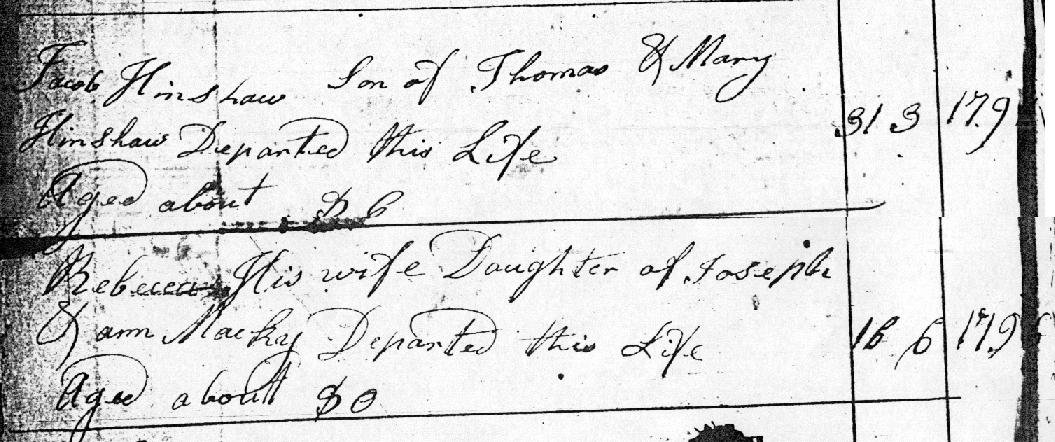 Jacob Hinshaw Son of Thomas & Mary
Hinshaw Departed this Life 31 3 179
Aged about 86
Rebecca His wife Daughter of Joseph
& ann Macky Departed this Life 16 6 179
Aged about 80